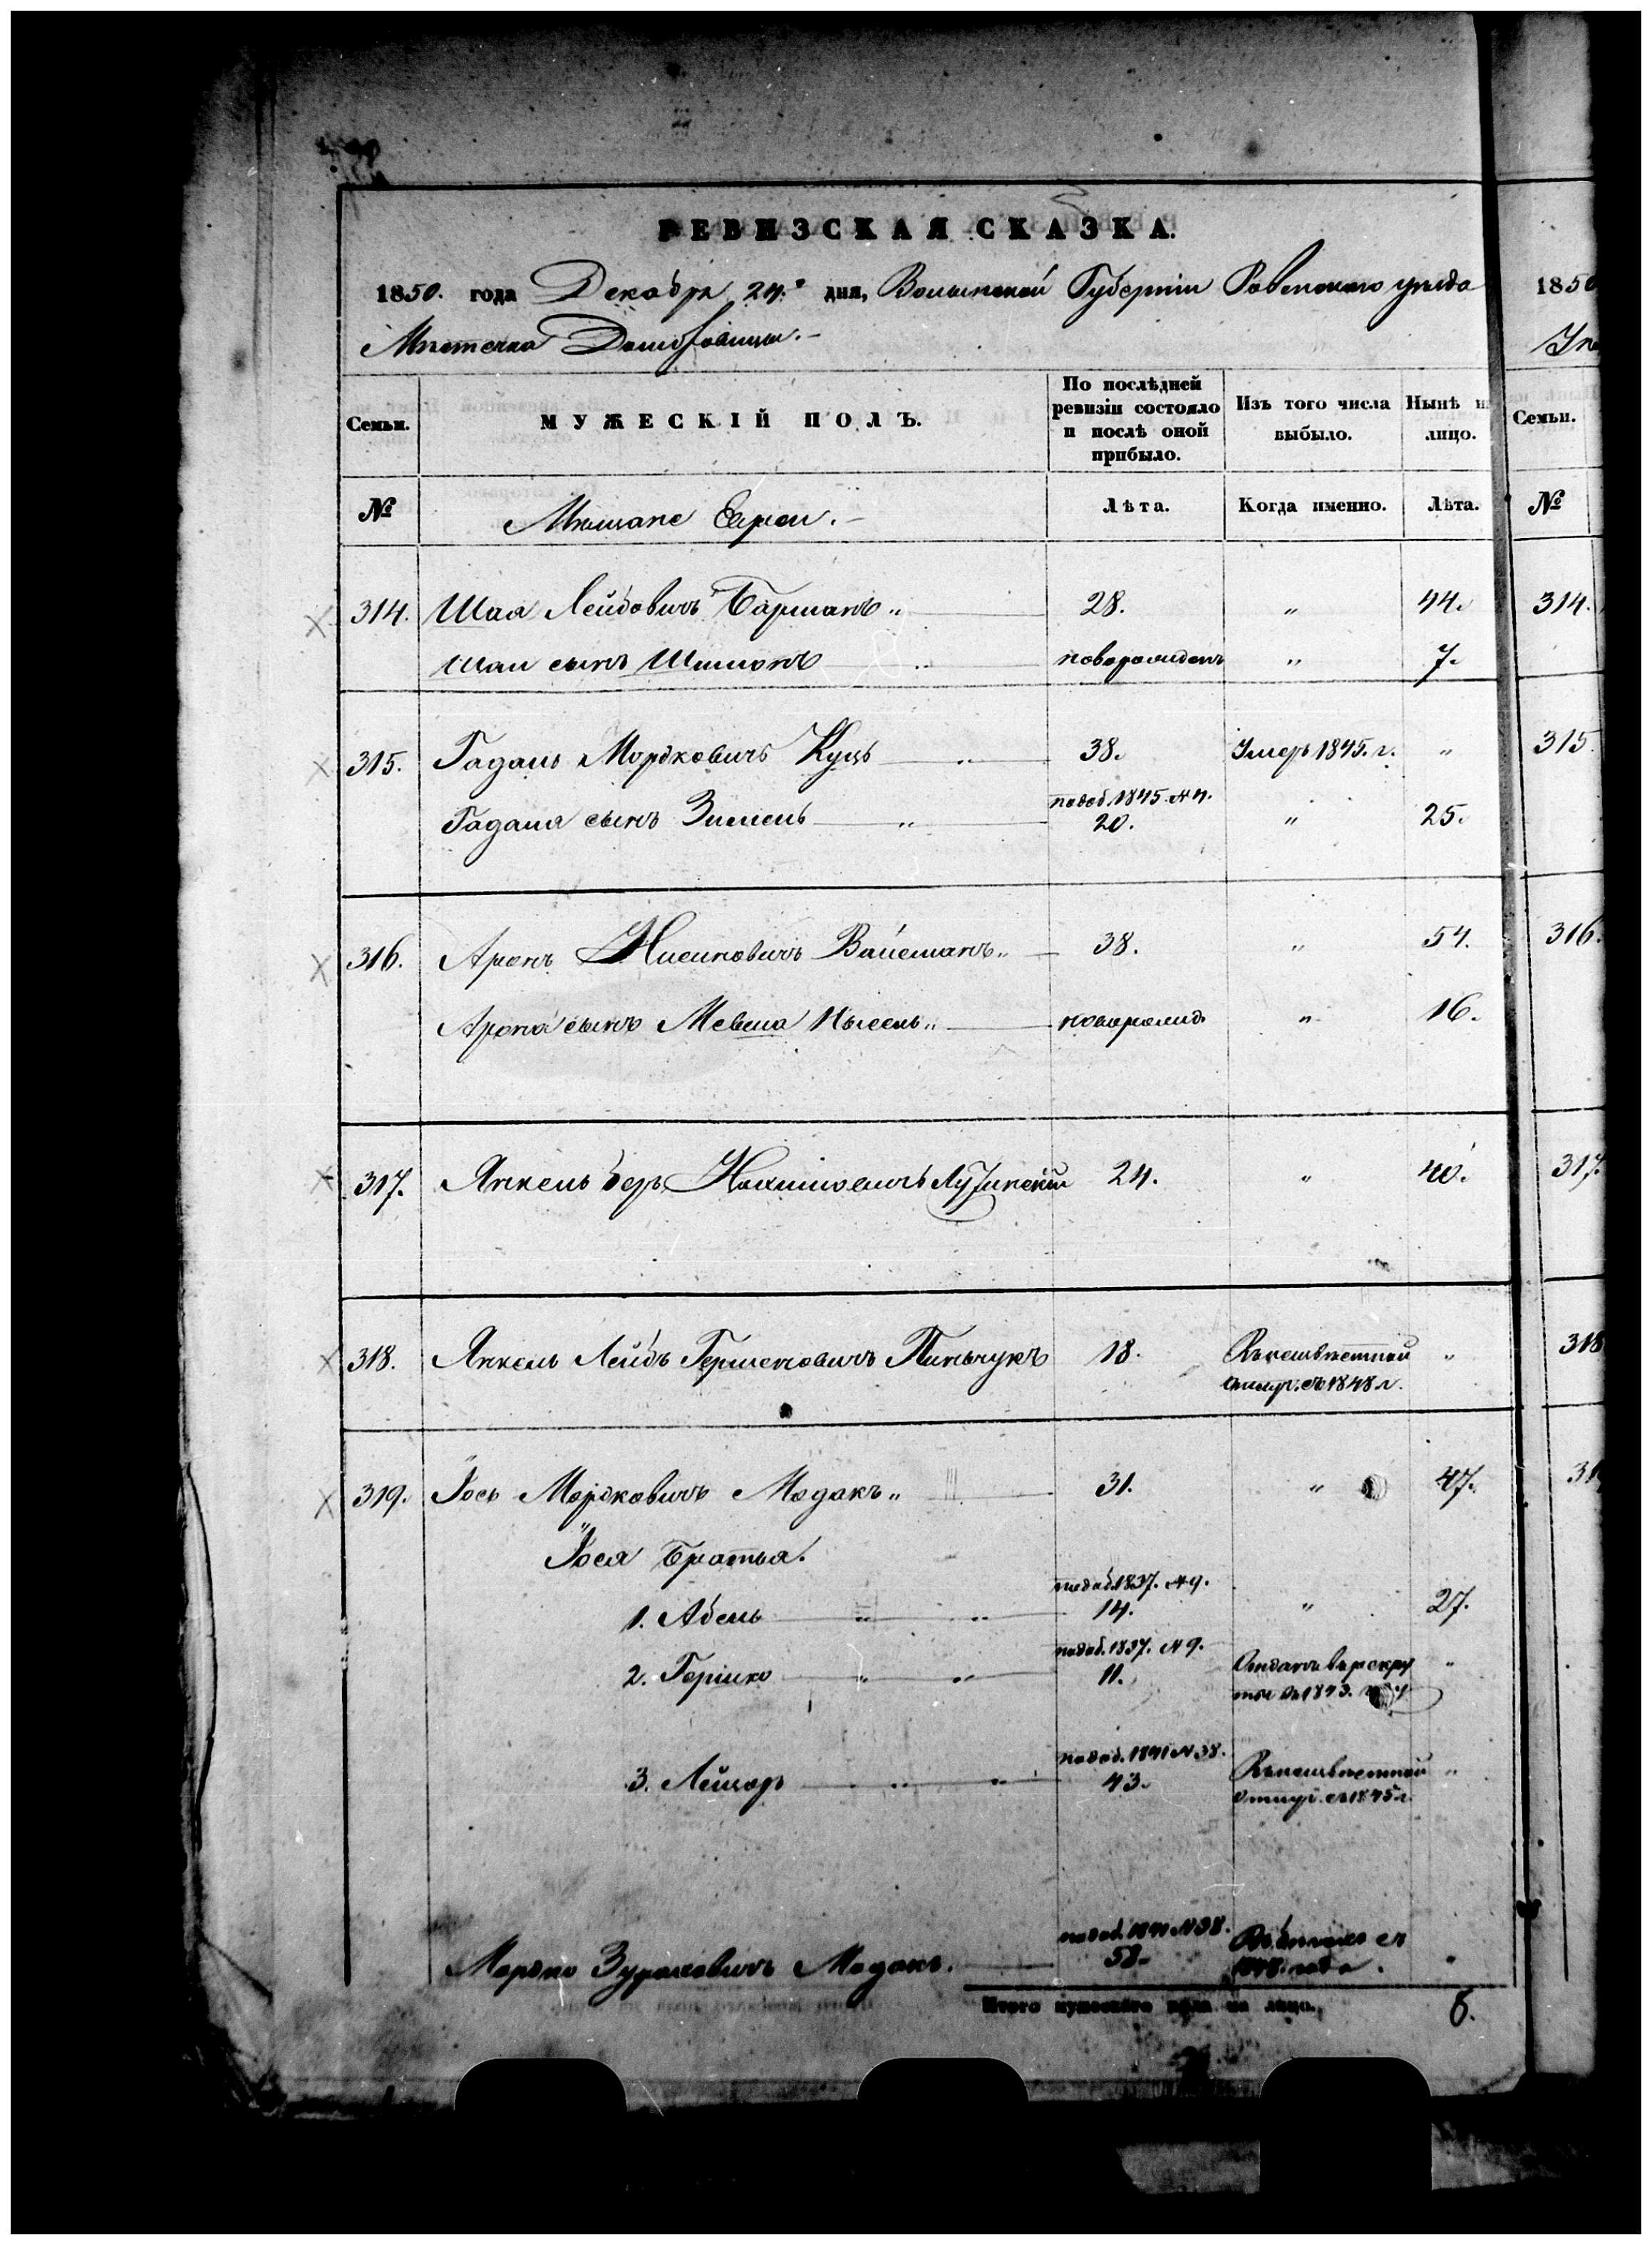 РЕВИЗСКАЯ СКАЗКА.
1850. года Декабря 24.го дня, Волынской Губерніи Ровенского уѣзда
Мѣстечка Домбровицы.
Семьи. МУЖЕСКІЙ ПОЛЪ. По послѣдней ревизіи состояло и послѣ оной прибыло. Изъ того числа выбыло. Нынѣ н лицо.
№ Мѣщане Евреи. Лѣта. Когда именно. Лѣта.
314. Шая Лейбовичъ Барманъ „ 28. „ 44.
Шаи сынъ Шимонъ „ новорожденъ „ 7.
315. Гадаль Мордковичъ Куцъ „ 38. Умеръ 1845. г. „
Гадаля сынъ Зимель „ подоб. 1845. №4. 20. „ 25.
316. Аронъ Нисиновичъ Вайсманъ „ 38. „ 54.
Арона сынъ Мевша Нысель „ новорожд. „ 16.
317. Янкель Беръ 24. „ 40.
318. Янкель Лейбъ Гершеновичъ Пинчукъ 18. Въ безвѣстной отлуч. съ 1848 г. „
319. Іось Мордковичъ Модакъ „ 31. „ 47.
Іося братья.
1. Абель „ „ подоб. 1837. №9. 14. „ 27.
2. Гершко „ „ подоб. 1837. №9. 11. Отданъ въ рекру ты въ 1843. „
3. Лейзоръ „ „ подоб. 1841 №38. 43. Въ безвѣстной отлуч. съ 1845 г. „
Мордко Модакъ. подоб. 1841 №38. 58. 1848. года. „
Итого мужескаго пола на лицо. 6.
1850
Семьи.
№
314.
315.
316.
317.
318
31